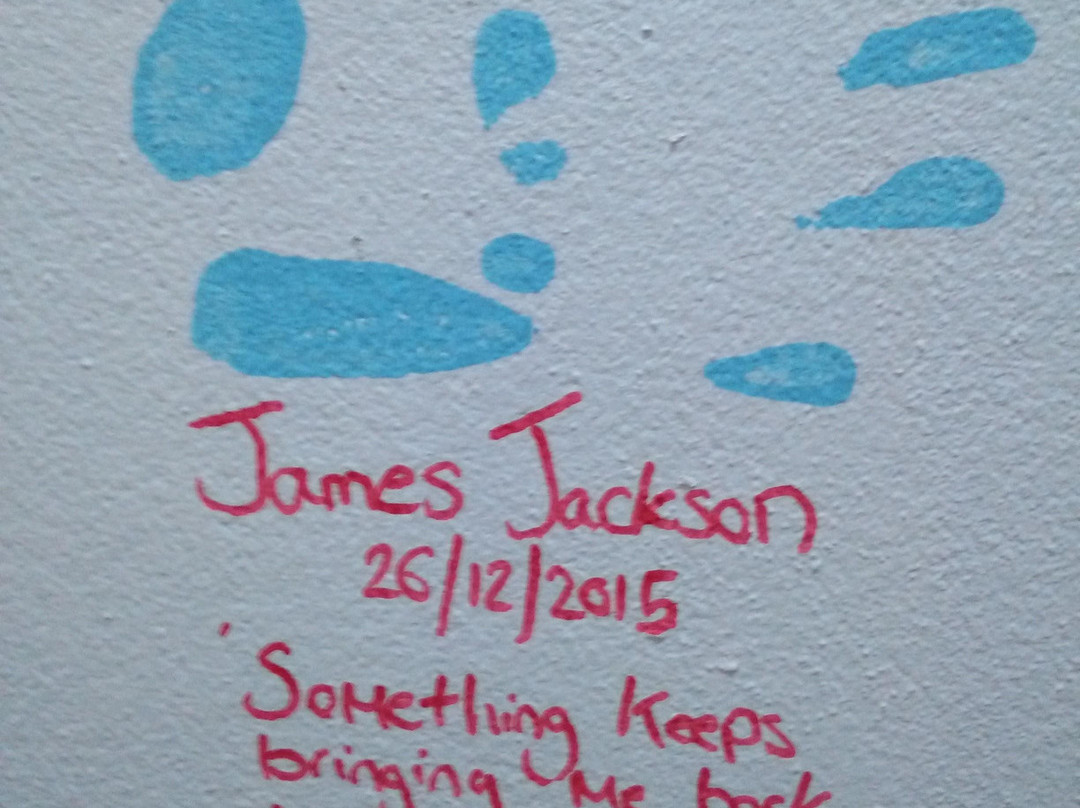 James Jackson
26/12/2015
'Something Keeps
bringing Me back